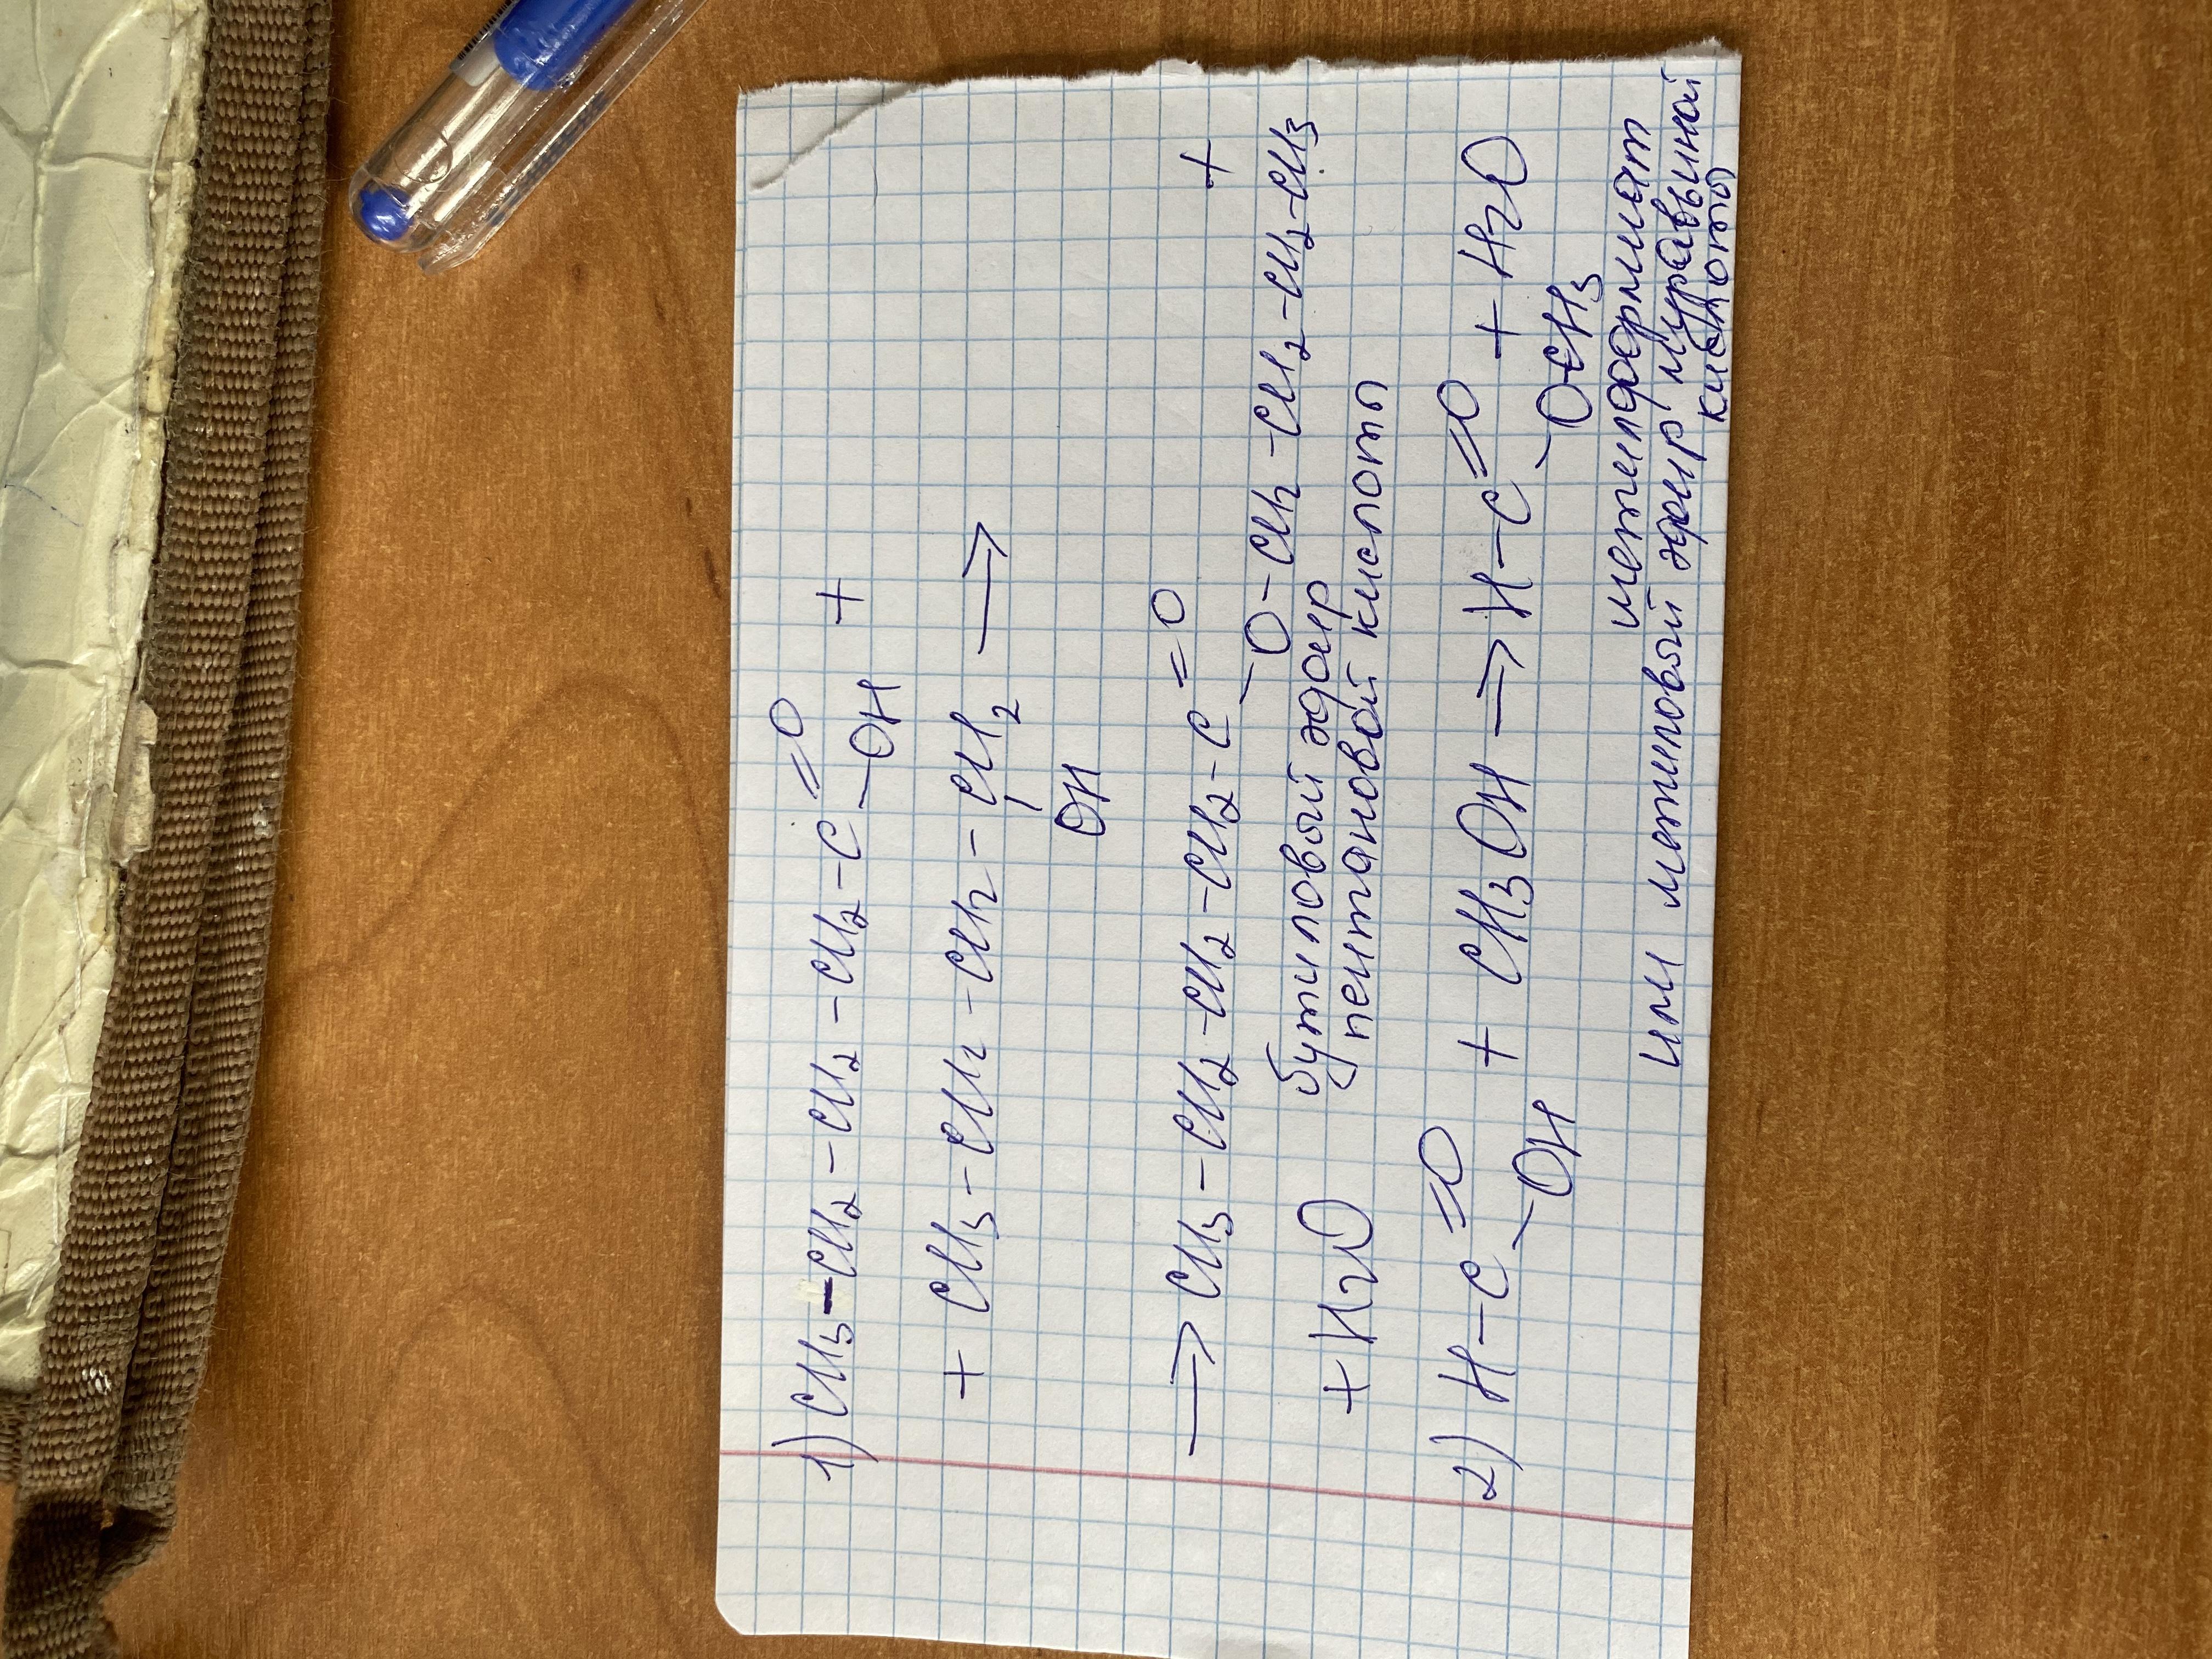 1) CH₃-CH₂-CH₂-CH₂-C=O +
-OH
+ CH₃-CH₂-CH₂-CH₂ →
OH
→ CH₃-CH₂-CH₂-CH₂-C=O +
-O-CH₂-CH₂-CH₂-CH₃
+ H₂O бутиловый эфир
пентановой кислоты
2) H-C=O + CH₃OH → H-C=O + H₂O
-OH -OCH₃
метилформиат
или метиловый эфир муравьиной
кислоты